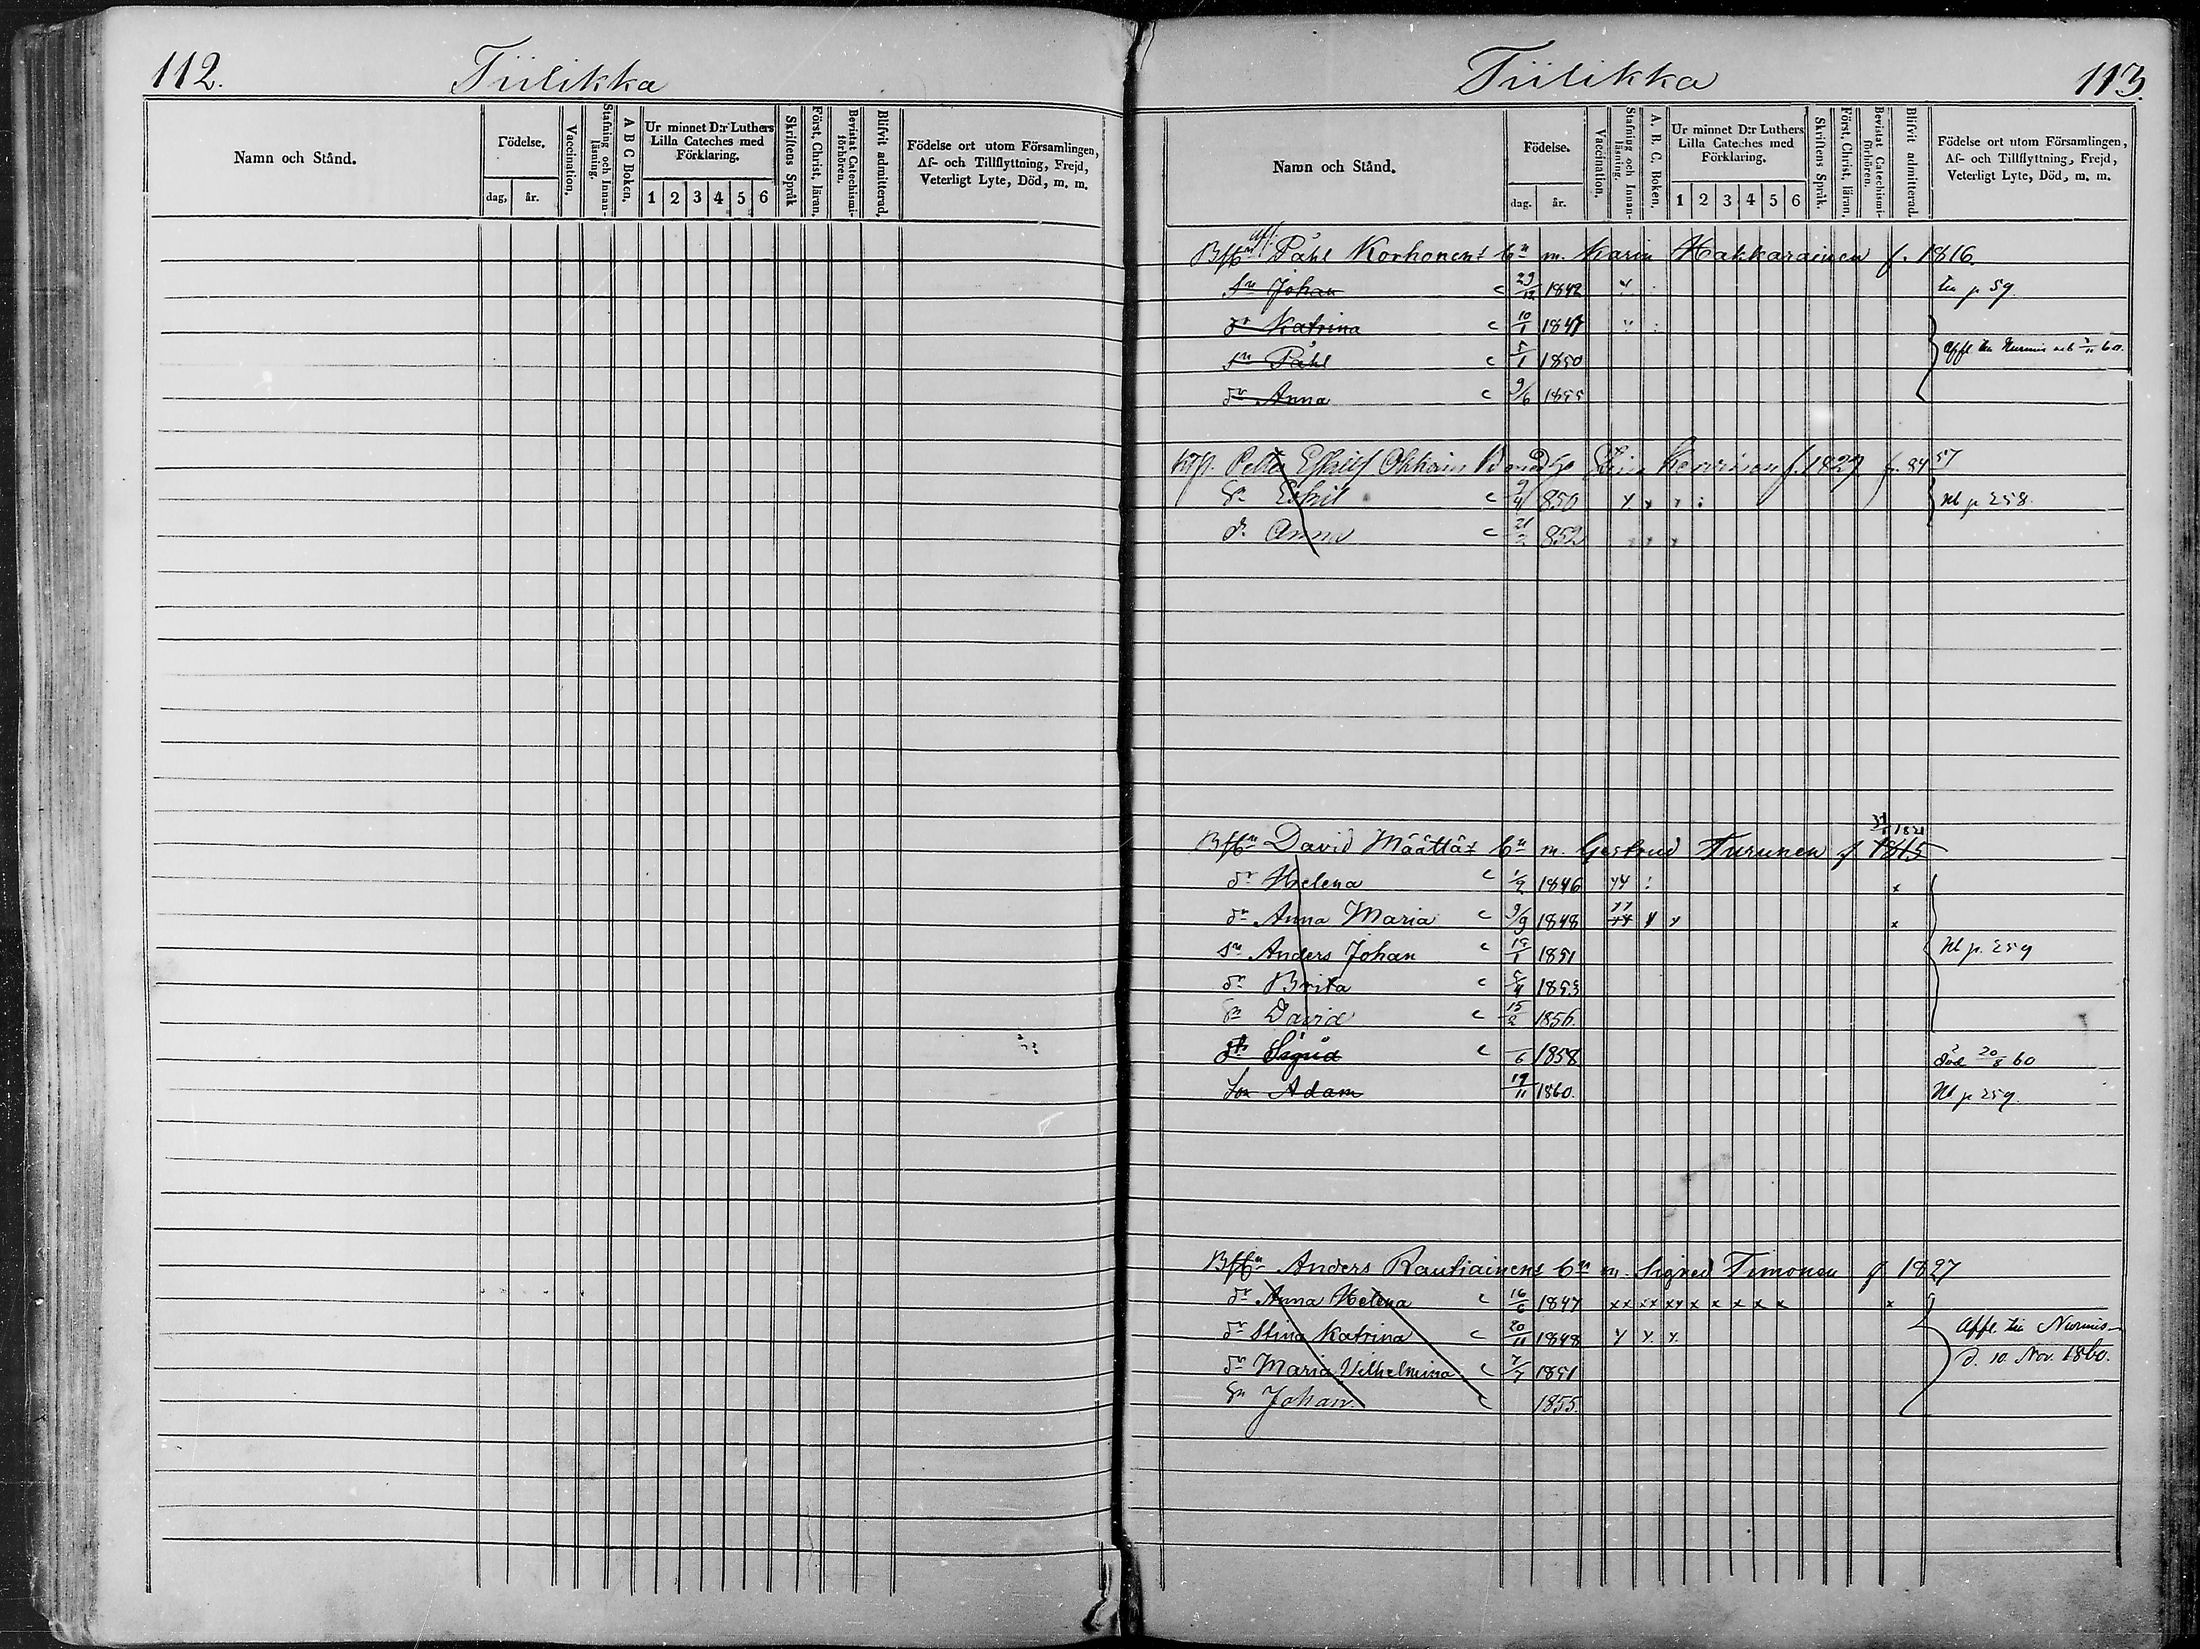 112.
Tiilikka
Namn och Stånd.
Födelse.
dag.
år.
Vaccination.
Stafning och Innanläsning.
A B C Boken.
Ur minnet D:r Luthers Lilla Cateches med Förklaring.
1 2 3 4 5 6
Skriftens Språk
Först. Christ. läran.
Bevistat Catechismiförhören.
Blifvit admitterad.
Födelse ort utom Församlingen, Af- och Tillflyttning, Frejd, Veterligt Lyte, Död, m. m.
Tiilikka
113.
Namn och Stånd.
Födelse.
dag.
år.
Vaccination.
Stafning och Innanläsning.
A. B. C. Boken.
Ur minnet D:r Luthers Lilla Cateches med Förklaring.
1 2 3 4 5 6
Skriftens Språk.
Först. Christ. läran.
Bevistat Catechismiförhören.
Blifvit admitterad.
Födelse ort utom Församlingen, Af- och Tillflyttning, Frejd, Veterligt Lyte, Död, m. m.
Påhl Korhonens bn m. Karin Hakkarainen f. 1816.
sn Johan c 29/12 1842 p 59.
dr Katrina c 10/1 1847
sn Påhl c 5/1 1850 Nurmis 60.
dr Anna c 9/6 1855
Petter Eskilss f. 1829
Sn Eskil c 9/4 850 p 258
dr Anna c 21/2 852
David Määttäs bn m. Gertrud Turunen f 1815 1821
dr Helena c 1/2 1846
dr Anna Maria c 9/9 1848
sn Anders Johan c 19/1 1851 p. 259
dr Brita c 5/4 1853
Sn David c 15/2 1856.
dr Sigrid c /6 1858 död 20/8 60
Son Adam 19/11 1860. p 259.
Anders Rautiainens bn m. Sigrid Timonen f 1827
dr Anna Helena c 16/6 1847
dr Stina Katrina c 20/11 1848 Affl. till Nurmis
dr Maria Vilhelmina c 7/7 1851 d. 10. Nov. 1860.
Sn Johan c 1855.